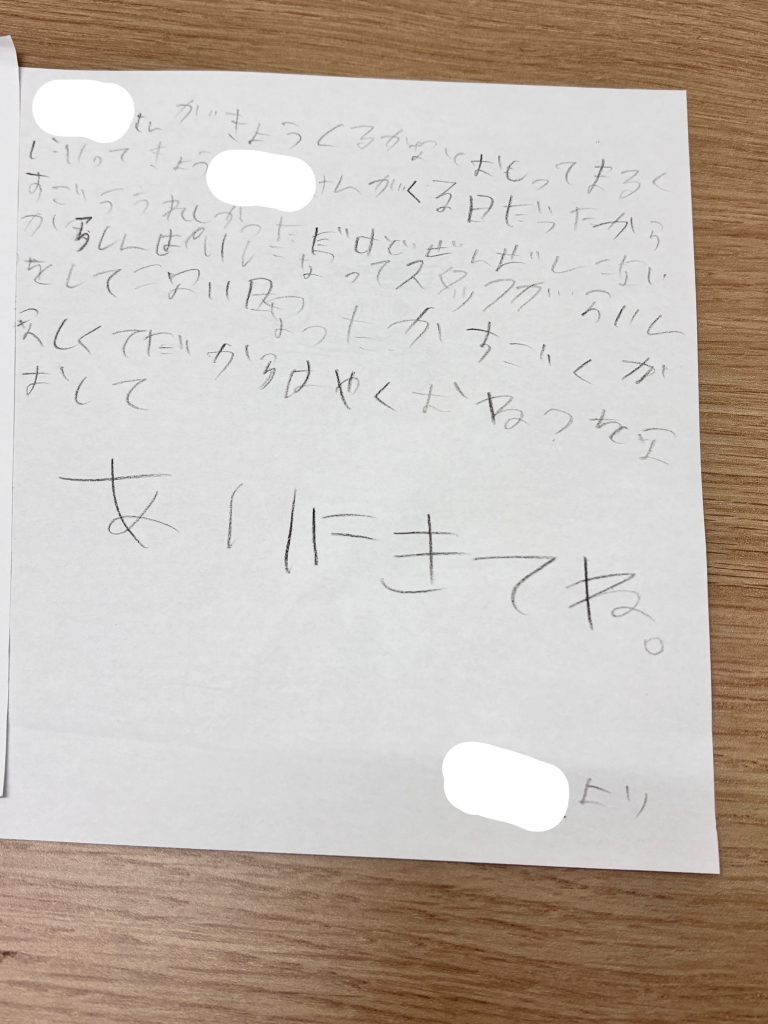 さんがきょうくるかなとおもってまるく
にいってきょう さんがくる日だったから
すごううれしかっただけどぜんぜんこない
からしんぱいになってスタッフが らいし
をしてこない日 なったか すごくか
天しくてだからはやくおねつを
おして
あいにきてね。
より